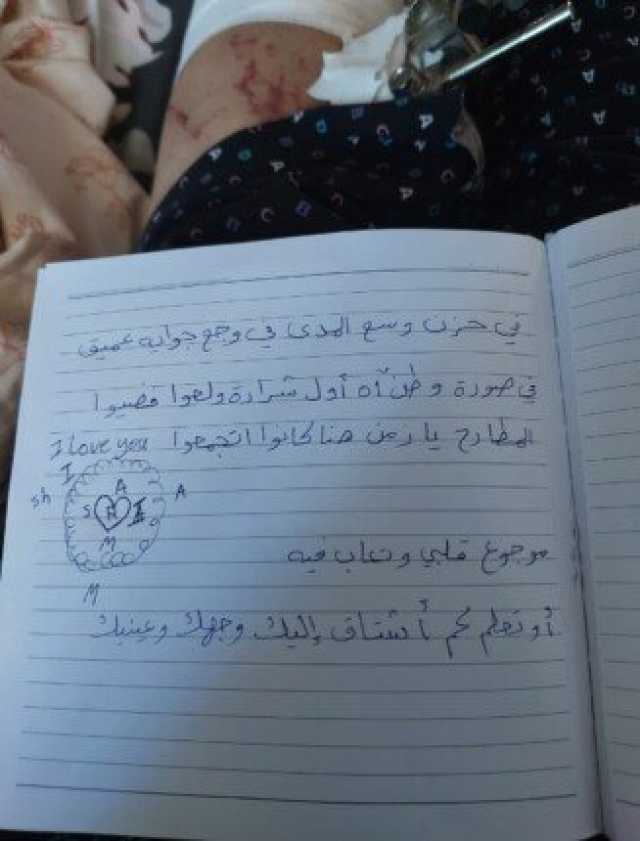 في حزن وسع المدى في وجع جوايه عميق
في صورة وطن آه أول شرارة ولعوا فضيوا
المطارح يا رمن هنا كانوا اتجمعوا
I love you
I
sh A A
S I
M
M
موجوع قلبي وتعاب فيه
أو تعلم كم أشتاق إليك وجهك وعينيك